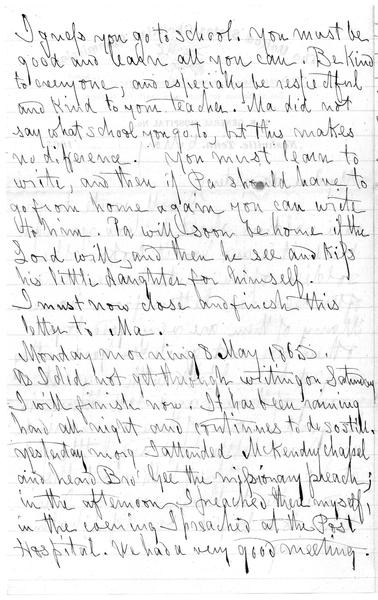 I guess you go to school. You must be
good and learn all you can. Be kind
to everyone, and especially be respectful
and kind to your teacher. Ma did not
say what school you go to, but this makes
no difference. You must learn to
write, and then if Pa should have to
go from home again you can write
to him. Pa will soon be home if the
Lord will, and then he see and kiss
his little daughter for himself.
I must now close and finish this
letter to Ma.
Monday morning 8 May 1865.
As I did not get through writing on Saturday
I will finish now. It has been raining
hard all night and continues to do so still.
Yesterday morg I attended McKendry Chapel
and heard Bro' Gee the missionary preach;
in the afternoon I preached there myself,
in the evening I preached at the Post
Hospital. We had a very good meeting.